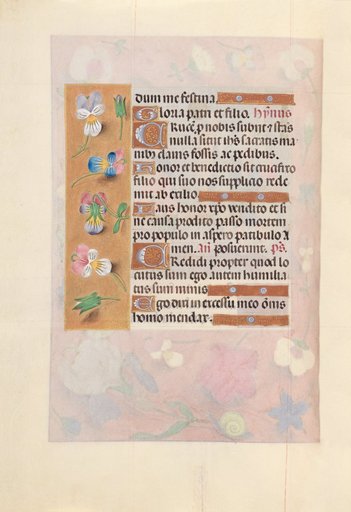 dum me festina.
Gloria patri et filio. Hymnus
Crucem p nobis subiit et stās
in illa sitiit ihūs sacratis ma
nibus clavis fossis ac pedibus.
Honor et benedictio sit crucifixo
filio qui suo nos supplicio rede
mit ab exilio.
Laus honor xpo vendito et si
ne causa prodito passo mortem
pro populo in aspero patibulo A
men. An Posuerunt. Ps.
Credidi propter quod lo
cutus sum ego autem humilia
tus sum nimis
Ego dixi in excessu meo ōnis
homo mendax.